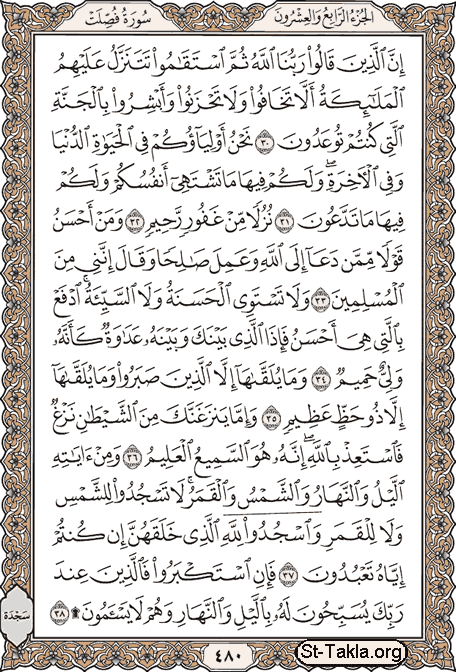 الجزء الرابع والعشرون
سورة فصلت
إِنَّ ٱلَّذِينَ قَالُوا۟ رَبُّنَا ٱللَّهُ ثُمَّ ٱسْتَقَـٰمُوا۟ تَتَنَزَّلُ عَلَيْهِمُ
ٱلْمَلَـٰٓئِكَةُ أَلَّا تَخَافُوا۟ وَلَا تَحْزَنُوا۟ وَأَبْشِرُوا۟ بِٱلْجَنَّةِ
ٱلَّتِى كُنتُمْ تُوعَدُونَ ٣٠ نَحْنُ أَوْلِيَآؤُكُمْ فِى ٱلْحَيَوٰةِ ٱلدُّنْيَا
وَفِى ٱلْـَٔاخِرَةِ ۖ وَلَكُمْ فِيهَا مَا تَشْتَهِىٓ أَنفُسُكُمْ وَلَكُمْ
فِيهَا مَا تَدَّعُونَ ٣١ نُزُلًا مِّنْ غَفُورٍ رَّحِيمٍ ٣٢ وَمَنْ أَحْسَنُ
قَوْلًا مِّمَّن دَعَآ إِلَى ٱللَّهِ وَعَمِلَ صَـٰلِحًا وَقَالَ إِنَّنِى مِنَ
ٱلْمُسْلِمِينَ ٣٣ وَلَا تَسْتَوِى ٱلْحَسَنَةُ وَلَا ٱلسَّيِّئَةُ ۚ ٱدْفَعْ
بِٱلَّتِى هِىَ أَحْسَنُ فَإِذَا ٱلَّذِى بَيْنَكَ وَبَيْنَهُۥ عَدَٰوَةٌ كَأَنَّهُۥ
وَلِىٌّ حَمِيمٌ ٣٤ وَمَا يُلَقَّىٰهَآ إِلَّا ٱلَّذِينَ صَبَرُوا۟ وَمَا يُلَقَّىٰهَآ
إِلَّا ذُو حَظٍّ عَظِيمٍ ٣٥ وَإِمَّا يَنزَغَنَّكَ مِنَ ٱلشَّيْطَـٰنِ نَزْغٌ
فَٱسْتَعِذْ بِٱللَّهِ ۖ إِنَّهُۥ هُوَ ٱلسَّمِيعُ ٱلْعَلِيمُ ٣٦ وَمِنْ ءَايَـٰتِهِ
ٱلَّيْلُ وَٱلنَّهَارُ وَٱلشَّمْسُ وَٱلْقَمَرُ ۚ لَا تَسْجُدُوا۟ لِلشَّمْسِ
وَلَا لِلْقَمَرِ وَٱسْجُدُوا۟ لِلَّهِ ٱلَّذِى خَلَقَهُنَّ إِن كُنتُمْ
إِيَّاهُ تَعْبُدُونَ ٣٧ فَإِنِ ٱسْتَكْبَرُوا۟ فَٱلَّذِينَ عِندَ
رَبِّكَ يُسَبِّحُونَ لَهُۥ بِٱلَّيْلِ وَٱلنَّهَارِ وَهُمْ لَا يَسْـَٔمُونَ ۩ ٣٨
سجدة
٤٨٠
St-Takla.org